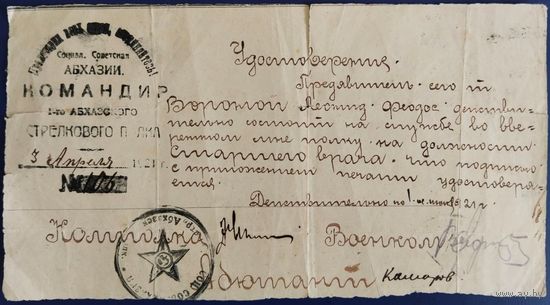 Пролетарии всех стран, соединяйтесь!
Социал. Советская
АБХАЗИИ.
КОМАНДИР
1-го АБХАЗСКОГО
СТРЕЛКОВОГО П ЛКА
3 Апреля 1921 г.
№ 106
Удостоверение.
Предявитель сего т
Ворожой Леонид Феодос. действи-
тельно состоит на службе во вве-
ренном мне полку на должности
Старшего врача, что подписью
с приложением печати удостоверя-
ется.
Действительно по 1 21 г.
Комполка
Военком
Адютант Комаров
www.ay.by